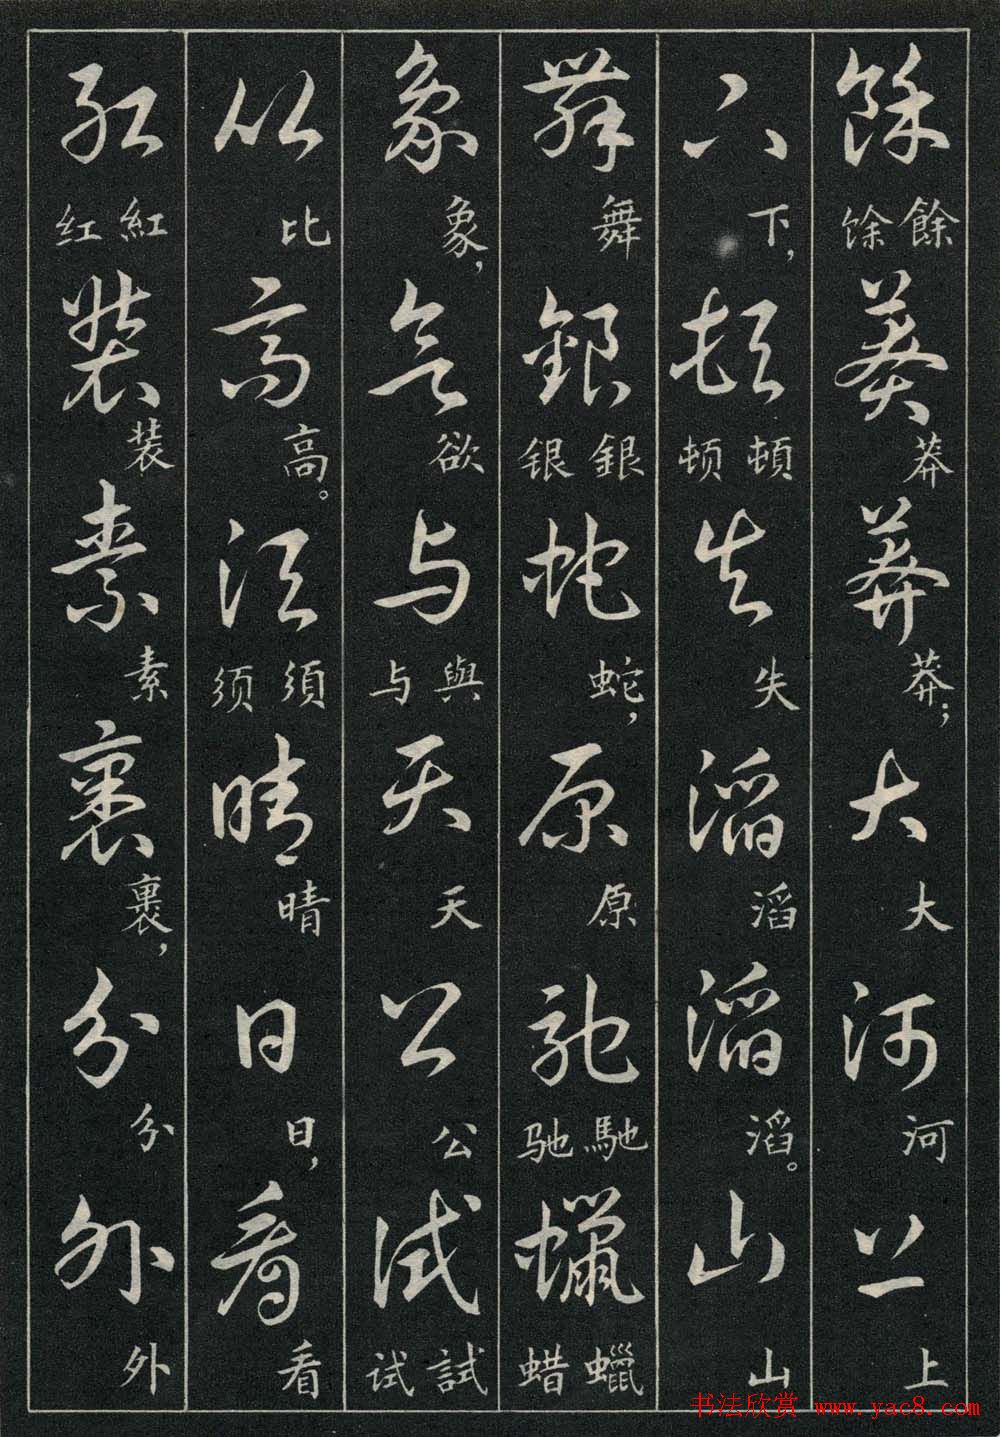 餘餘馀莽莽莽莽；大大河河上上
下下，頓頓顿失失滔滔滔滔。山山
舞舞銀銀银蛇蛇，原原馳馳驰蠟蠟蜡
象象，欲欲与與与天天公公試試试
比比高高。須須须晴晴日日，看看
紅紅红装装素素裹裹，分分外外
书法欣赏 www.yac8.com